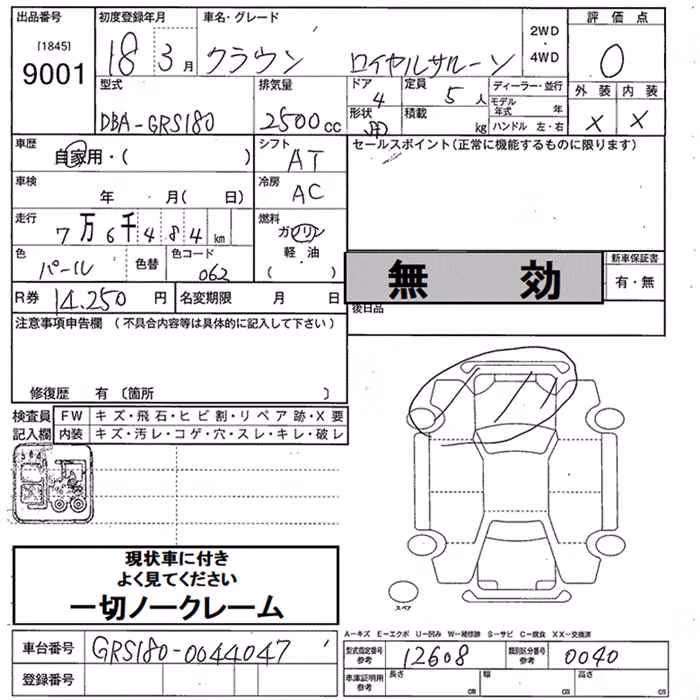 出品番号 初度登録年月 車名・グレード 2WD・4WD 評価点
[1845] 9001 18 3月 クラウン ロイヤルサルーン 0
型式 排気量 ドア 4 定員 5人 ディーラー・並行 外装 内装
DBA-GRS180 2500cc 形状 積載 kg モデル年式 年 ハンドル 左・右 X X
車歴 自家用・( ) シフト AT セールスポイント(正常に機能するものに限ります)
車検 年 月( 日) 冷房 AC
走行 7万6千484km 燃料 ガソリン
色 パール 色替 色コード 062 軽・油 ( )
無効 新車保証書 有・無
R券 14.250円 名変期限 月 日 後日品
注意事項申告欄(不具合内容等は具体的に記入して下さい)
修復歴 有〔箇所 〕
検査員 FW キズ・飛石・ヒビ割・リペア跡・X要
記入欄 内装 キズ・汚レ・コゲ・穴・スレ・キレ・破レ
現状車に付き
よく見てください
一切ノークレーム
スペア
A−キズ E−エクボ U−凹み W−補修跡 S−サビ C−腐食 XX−交換済
車台番号 GRS180-0044047 型式指定番号 参考 12608 類別区分番号 参考 0040
登録番号 車庫証明用 参考 長さ cm 幅 cm 高さ cm